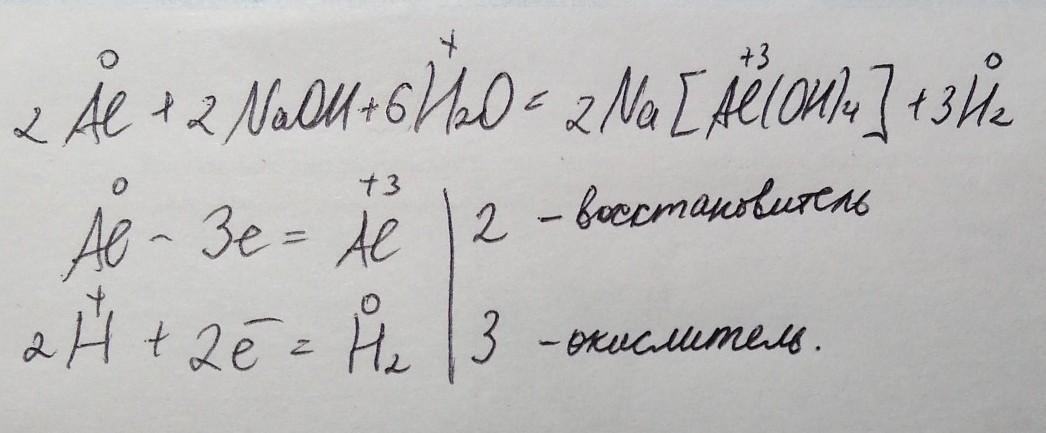 2Al⁰ + 2NaOH + 6H₂⁺O = 2Na[Al⁺³(OH)₄] + 3H₂⁰
Al⁰ - 3e = Al⁺³ | 2 - восстановитель
2H⁺ + 2e⁻ = H₂⁰ | 3 - окислитель.